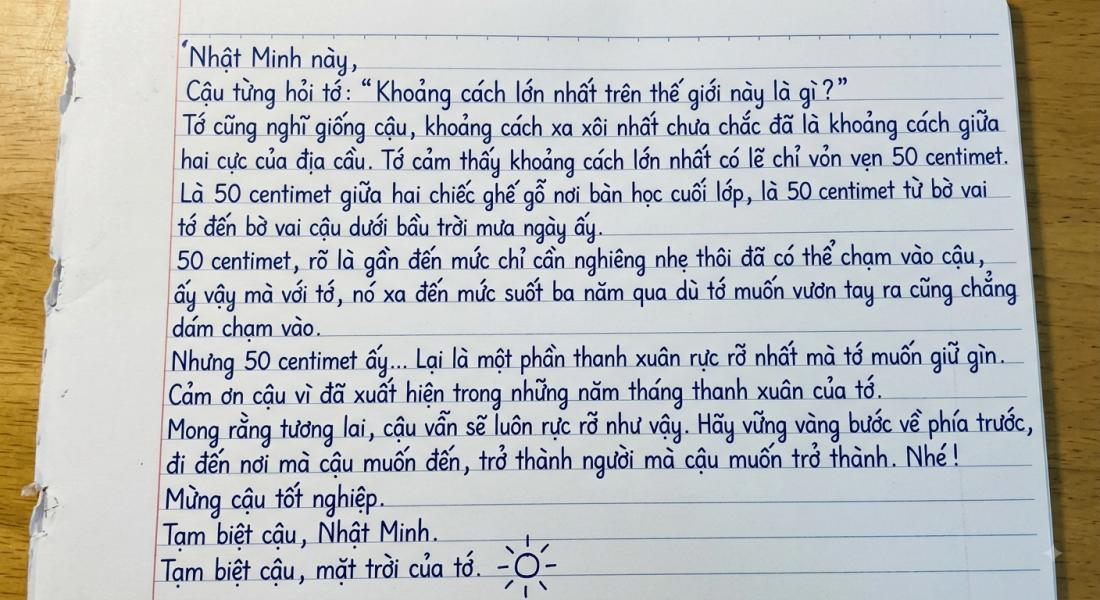 Nhật Minh này,
Cậu từng hỏi tớ: “Khoảng cách lớn nhất trên thế giới này là gì?”
Tớ cũng nghĩ giống cậu, khoảng cách xa xôi nhất chưa chắc đã là khoảng cách giữa
hai cực của địa cầu. Tớ cảm thấy khoảng cách lớn nhất có lẽ chỉ vỏn vẹn 50 centimet.
Là 50 centimet giữa hai chiếc ghế gỗ nơi bàn học cuối lớp, là 50 centimet từ bờ vai
tớ đến bờ vai cậu dưới bầu trời mưa ngày ấy.
50 centimet, rõ là gần đến mức chỉ cần nghiêng nhẹ thôi đã có thể chạm vào cậu,
ấy vậy mà với tớ, nó xa đến mức suốt ba năm qua dù tớ muốn vươn tay ra cũng chẳng
dám chạm vào.
Nhưng 50 centimet ấy... Lại là một phần thanh xuân rực rỡ nhất mà tớ muốn giữ gìn.
Cảm ơn cậu vì đã xuất hiện trong những năm tháng thanh xuân của tớ.
Mong rằng tương lai, cậu vẫn sẽ luôn rực rỡ như vậy. Hãy vững vàng bước về phía trước,
đi đến nơi mà cậu muốn đến, trở thành người mà cậu muốn trở thành. Nhé!
Mừng cậu tốt nghiệp.
Tạm biệt cậu, Nhật Minh.
Tạm biệt cậu, mặt trời của tớ.